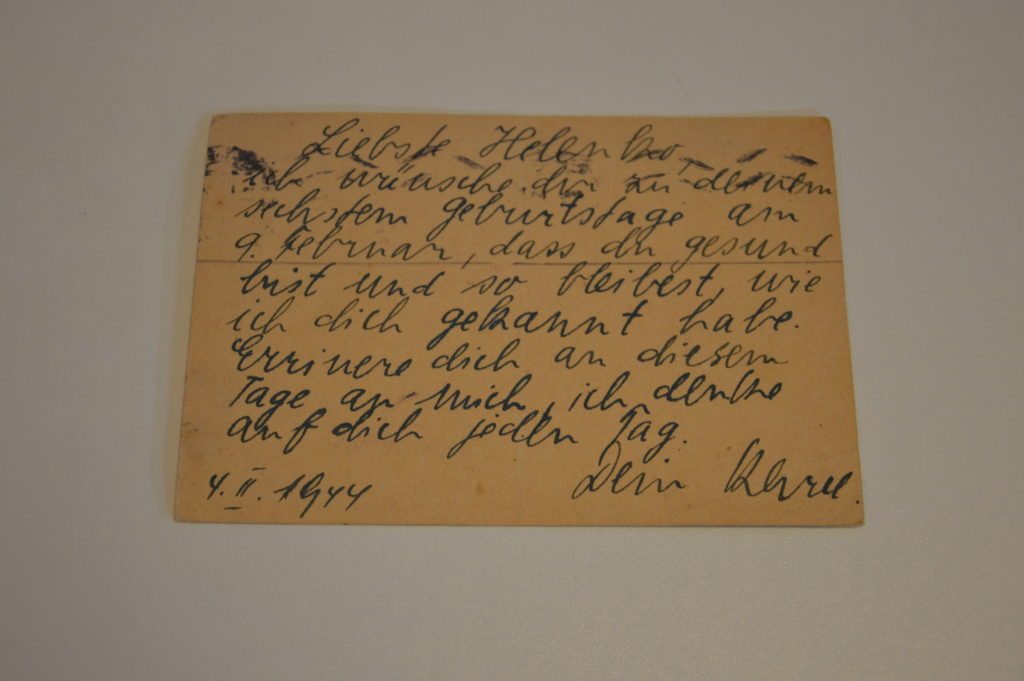 Liebste Helenko,
ich wünsche dir zu deinem
sechstem geburtstage am
9. Februar, dass du gesund
bist und so bleibest, wie
ich dich gekannt habe.
Errinere dich an diesem
Tage an mich, ich denke
auf dich jeden Tag.
Dein
4. II. 1944